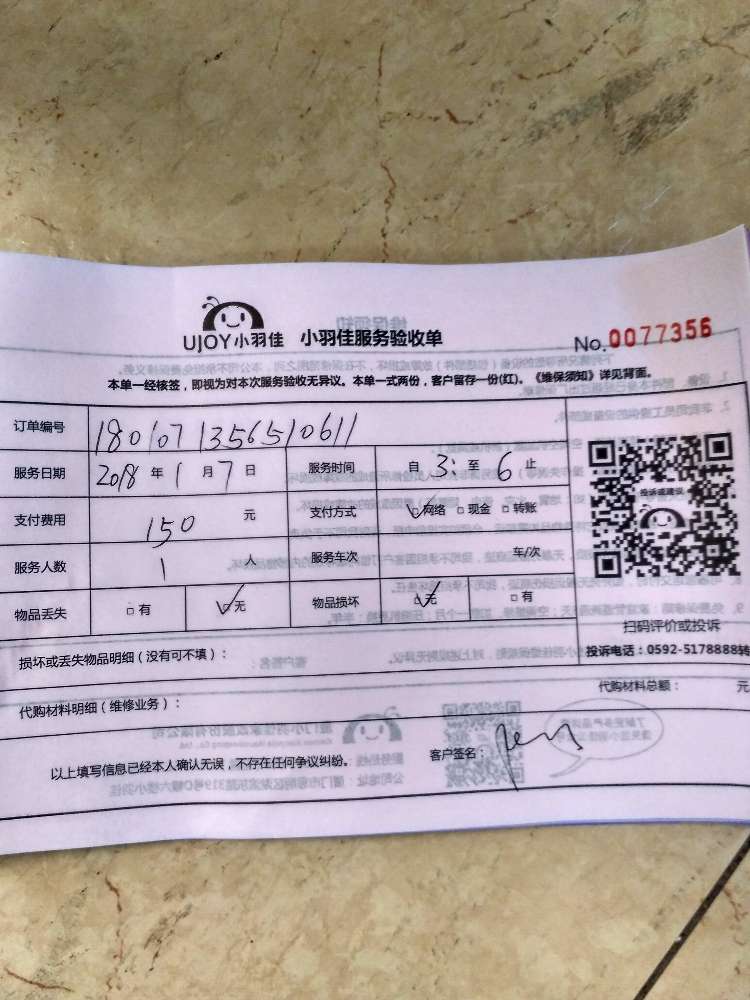 UJOY小羽佳 小羽佳服务验收单
No.0077356
本单一经核签，即视为对本次服务验收无异议。本单一式两份，客户留存一份(红)。《维保须知》详见背面。
订单编号 180107135651０611
服务日期 2018 年 1 月 7 日 服务时间 自 3: 至 6 止
支付费用 150 元 支付方式 ☑网络 □现金 □转账
服务人数 1 人 服务车次 车/次
物品丢失 □有 ☑无 物品损坏 ☑无 □有
投诉或建议
扫码评价或投诉
投诉电话：0592-5178888转
损坏或丢失物品明细（没有可不填）：
代购材料明细（维修业务）： 代购材料总额： 元
以上填写信息已经本人确认无误，不存在任何争议纠纷。 客户签名：